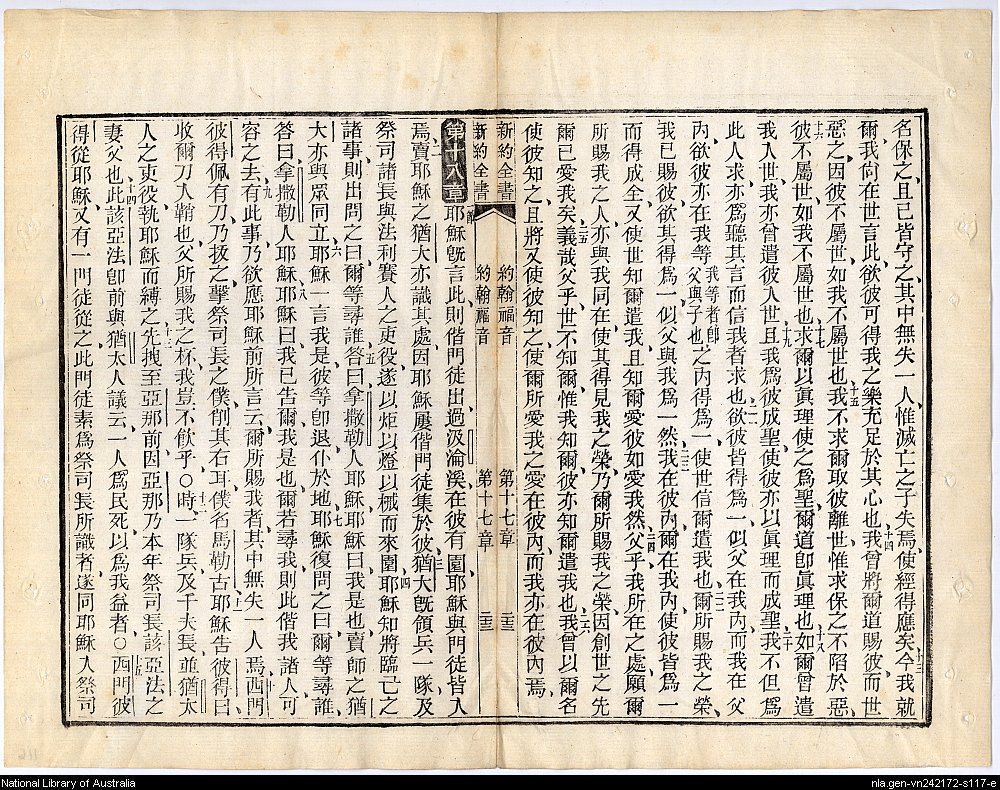 名保之、且已皆守之、其中無失一人、惟滅亡之子失焉、使經得應矣、十三今我就
爾、我尙在世言此、欲彼可得我之樂充足於其心也、十四我曾將爾道賜彼、而世
惡之、因彼不屬世、如我不屬世也、十五我不求爾取彼離世、惟求保之不陷於惡、
十六彼不屬世、如我不屬世也、十七求爾以眞理使之爲聖、爾道卽眞理也、十八如爾曾遣
我入世、我亦曾遣彼入世、十九且我爲彼成聖、使彼亦以眞理而成聖、二十我不但爲
此人求、亦爲聽其言而信我者求也、二一欲彼皆得爲一、似父在我內、而我在父
內、欲彼亦在我等我等者卽父與子也之內得爲一、使世信爾遣我也、二二爾所賜我之榮、
我已賜彼、欲其得爲一、似父與我爲一然、二三我在彼內、爾在我內、使彼皆爲一
而得成全、又使世知爾遣我、且知爾愛彼如愛我然、二四父乎、我所在之處、願爾
所賜我之人、亦與我同在、使其得見我之榮、乃爾所賜我之榮、因創世之先、
爾已愛我矣、二五義哉父乎、世不知爾、惟我知爾、彼亦知爾遣我也、二六我曾以爾名
使彼知之、且將又使彼知之、使爾所愛我之愛在彼內、而我亦在彼內焉、
新約全書 約翰福音 第十七章 二三
新約全書 約翰福音 第十七章 二三
第十八章 一節耶穌旣言此、則偕門徒出過汲淪溪、在彼有園、耶穌與門徒皆入
焉、二賣耶穌之猶大亦識其處、因耶穌屢偕門徒集於彼、三猶大旣領兵一隊、及
祭司諸長與法利賽人之吏役、遂以炬以燈以械而來園、四耶穌知將臨己之
諸事、則出問之曰、爾等尋誰、五答曰、拿撒勒人耶穌、耶穌曰、我是也、賣師之猶
大亦與衆同立、六耶穌一言我是、彼等卽退仆於地、七耶穌復問之曰、爾等尋誰、
答曰、拿撒勒人耶穌、八耶穌曰、我已告爾我是也、爾若尋我、則此偕我諸人、可
容之去、九有此事、乃欲應耶穌前所言云、爾所賜我者、其中無失一人焉、十西門
彼得佩有刀、乃拔之、擊祭司長之僕、削其右耳、僕名馬勒古、十一耶穌告彼得曰、
收爾刀入鞘也、父所賜我之杯、我豈不飲乎、○十二時一隊兵及千夫長、並猶太
人之吏役、執耶穌而縛之、十三先拽至亞那前、因亞那乃本年祭司長該亞法之
妻父也、十四此該亞法卽前與猶太人議云、一人爲民死、以爲我益者、○十五西門彼
得從耶穌、又有一門徒從之、此門徒素爲祭司長所識者、遂同耶穌入祭司
National Library of Australia
nla.gen-vn242172-s117-e